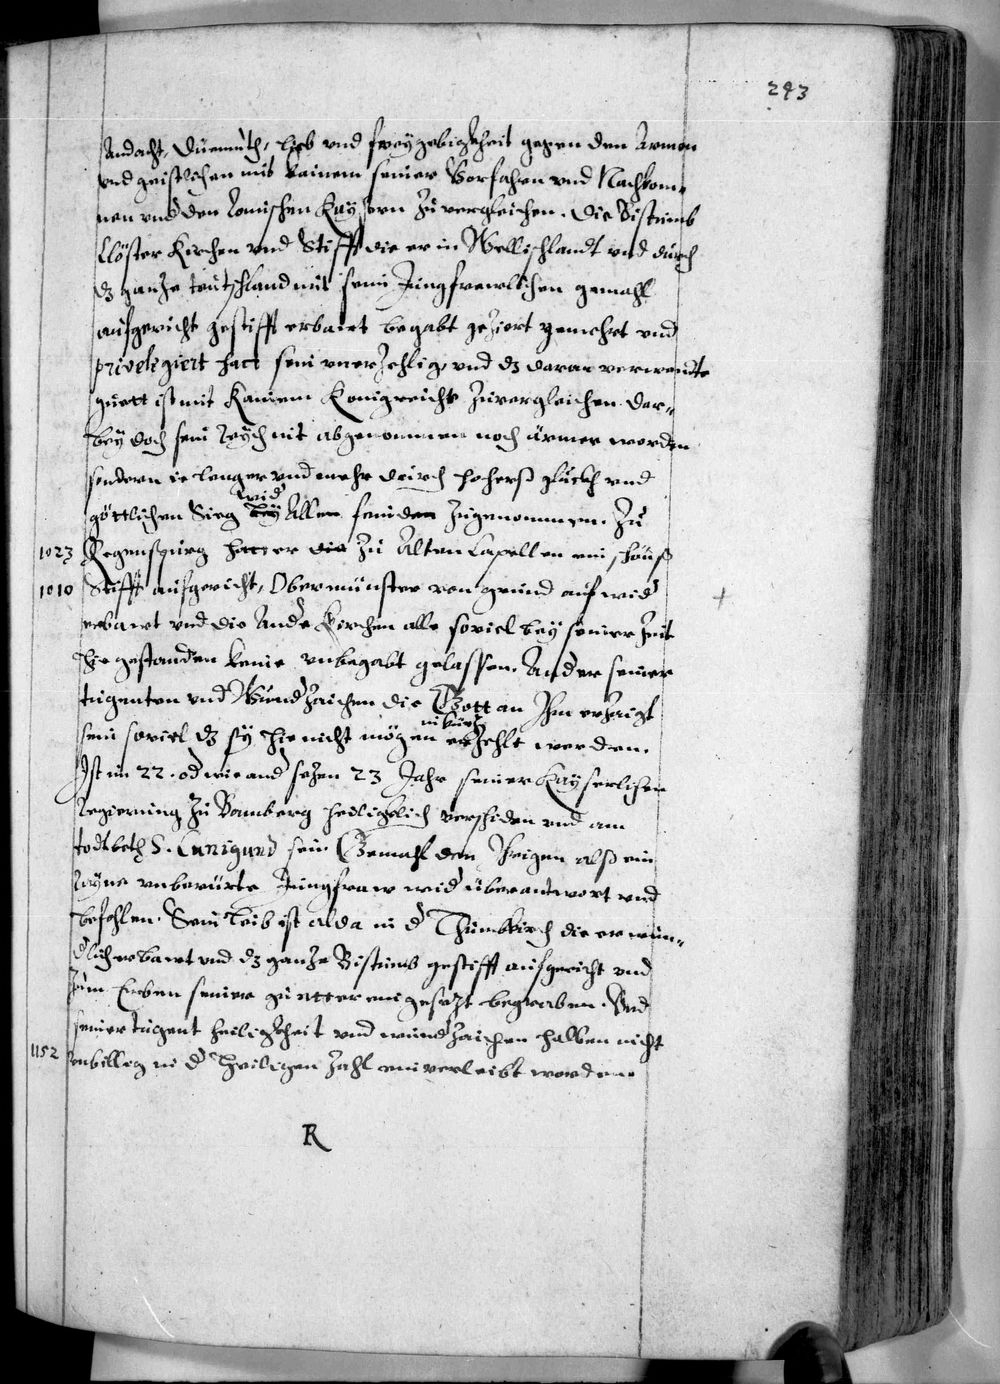 293
Andacht, Diemuth, lieb vnd freygebigkheit gegen den Armen
vnd geistlichen mit kainem seiner Vorfahren vnd Nachkom-
nen vnd den Romischen Kaysern zuvergleichen. Die Bistumb
Clöster Kirchen vnd Stifft die er in Wellischlandt vnd durch
dz ganze teutschland mit sein Jungfrewlichen gemahl
aufgericht gestifft erbawt begabt geziert gemehrt vnd
privelegiert hatt sein vnerzehlig, vnd dz daran verwendte
guett ist mit Kainem Konigreich zuvergleichen. dar-
bey doch sein Reych nit abgenommen noch ärmer worden
sondern ie lenger vnd mehr durch hohers glückh vnd
göttlichen Sieg wid Allen feinden zugenommen. Zu
1023 Regenspurg hatt er die zu Alten Capellen ein schöns
1010 Stifft aufgericht, Obermünster von grund auf wid
erbawt vnd die Andr Kirchen alle soviel bey seiner Zeit
hie gestanden keine vnbegabt gelassen. Ander seiner
tugenten vnd Wundzaichen die Gott an Ihm erzaigt
sein soviel dz sy hie nicht mögen in kürz erzehlt werden.
Ist im 22. od wie and sezen 23 Jahr seiner Kayserlichen
Regierung zu Bamberg heiligklich verschiden vnd am
todtbeth S. Cunigund sein Gemahl den Ihrigen alß ein
Rayne vnberürte Jungfraw wid überantwort vnd
befohlen. Sein leib ist alda in d Thumbkirch die er wun-
dlich erbawt vnd dz ganze Bistumb gestifft aufgericht vnd
zum Erben seiner güetter eingesezt begraben. Vnd
seiner tugent heiligkheit vnd wundzaichen halben nicht
1152 vnbillig in d Heiligen Zahl einverleibt worden.
R